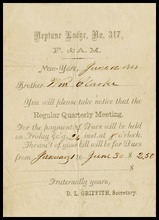 Neptune Lodge, No. 317,
F. & A. M.
New-York, June
Brother Wm. Clarke
You will please take notice that the
Regular Quarterly Meeting,
For the payment of Dues will be held
on Friday Ev'g, 24 inst. at o'clock.
The am't of your bill will be for Dues
from January to June 30 $ 2.50
Fraternally yours,
D. L. GRIFFITH, Secretary.